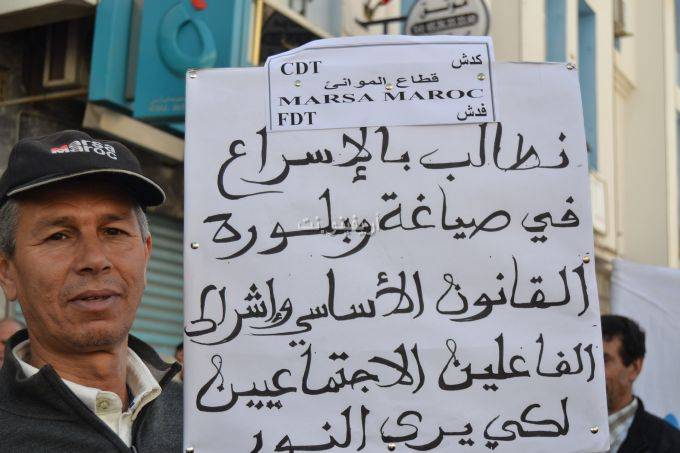 CDT كدش
قطاع الموانئ
MARSA MAROC
FDT فدش
نطالب بالإسراع
في صياغة وبلورة
القانون الأساسي وإشراك
الفاعلين الاجتماعيين
لكي يرى النور
Marsa
Maroc